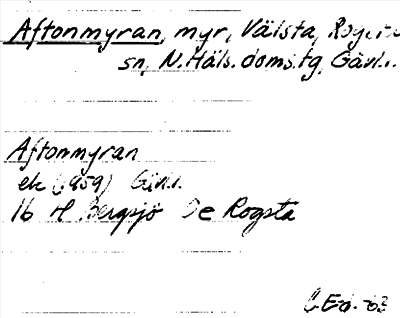 Aftonmyran, myr, Välsta, Rogsta
sn, N. Häls. doms.tg, Gävl.
Aftonmyran
ek (1959) Gävl.
16 H Bergsjö De Rogsta